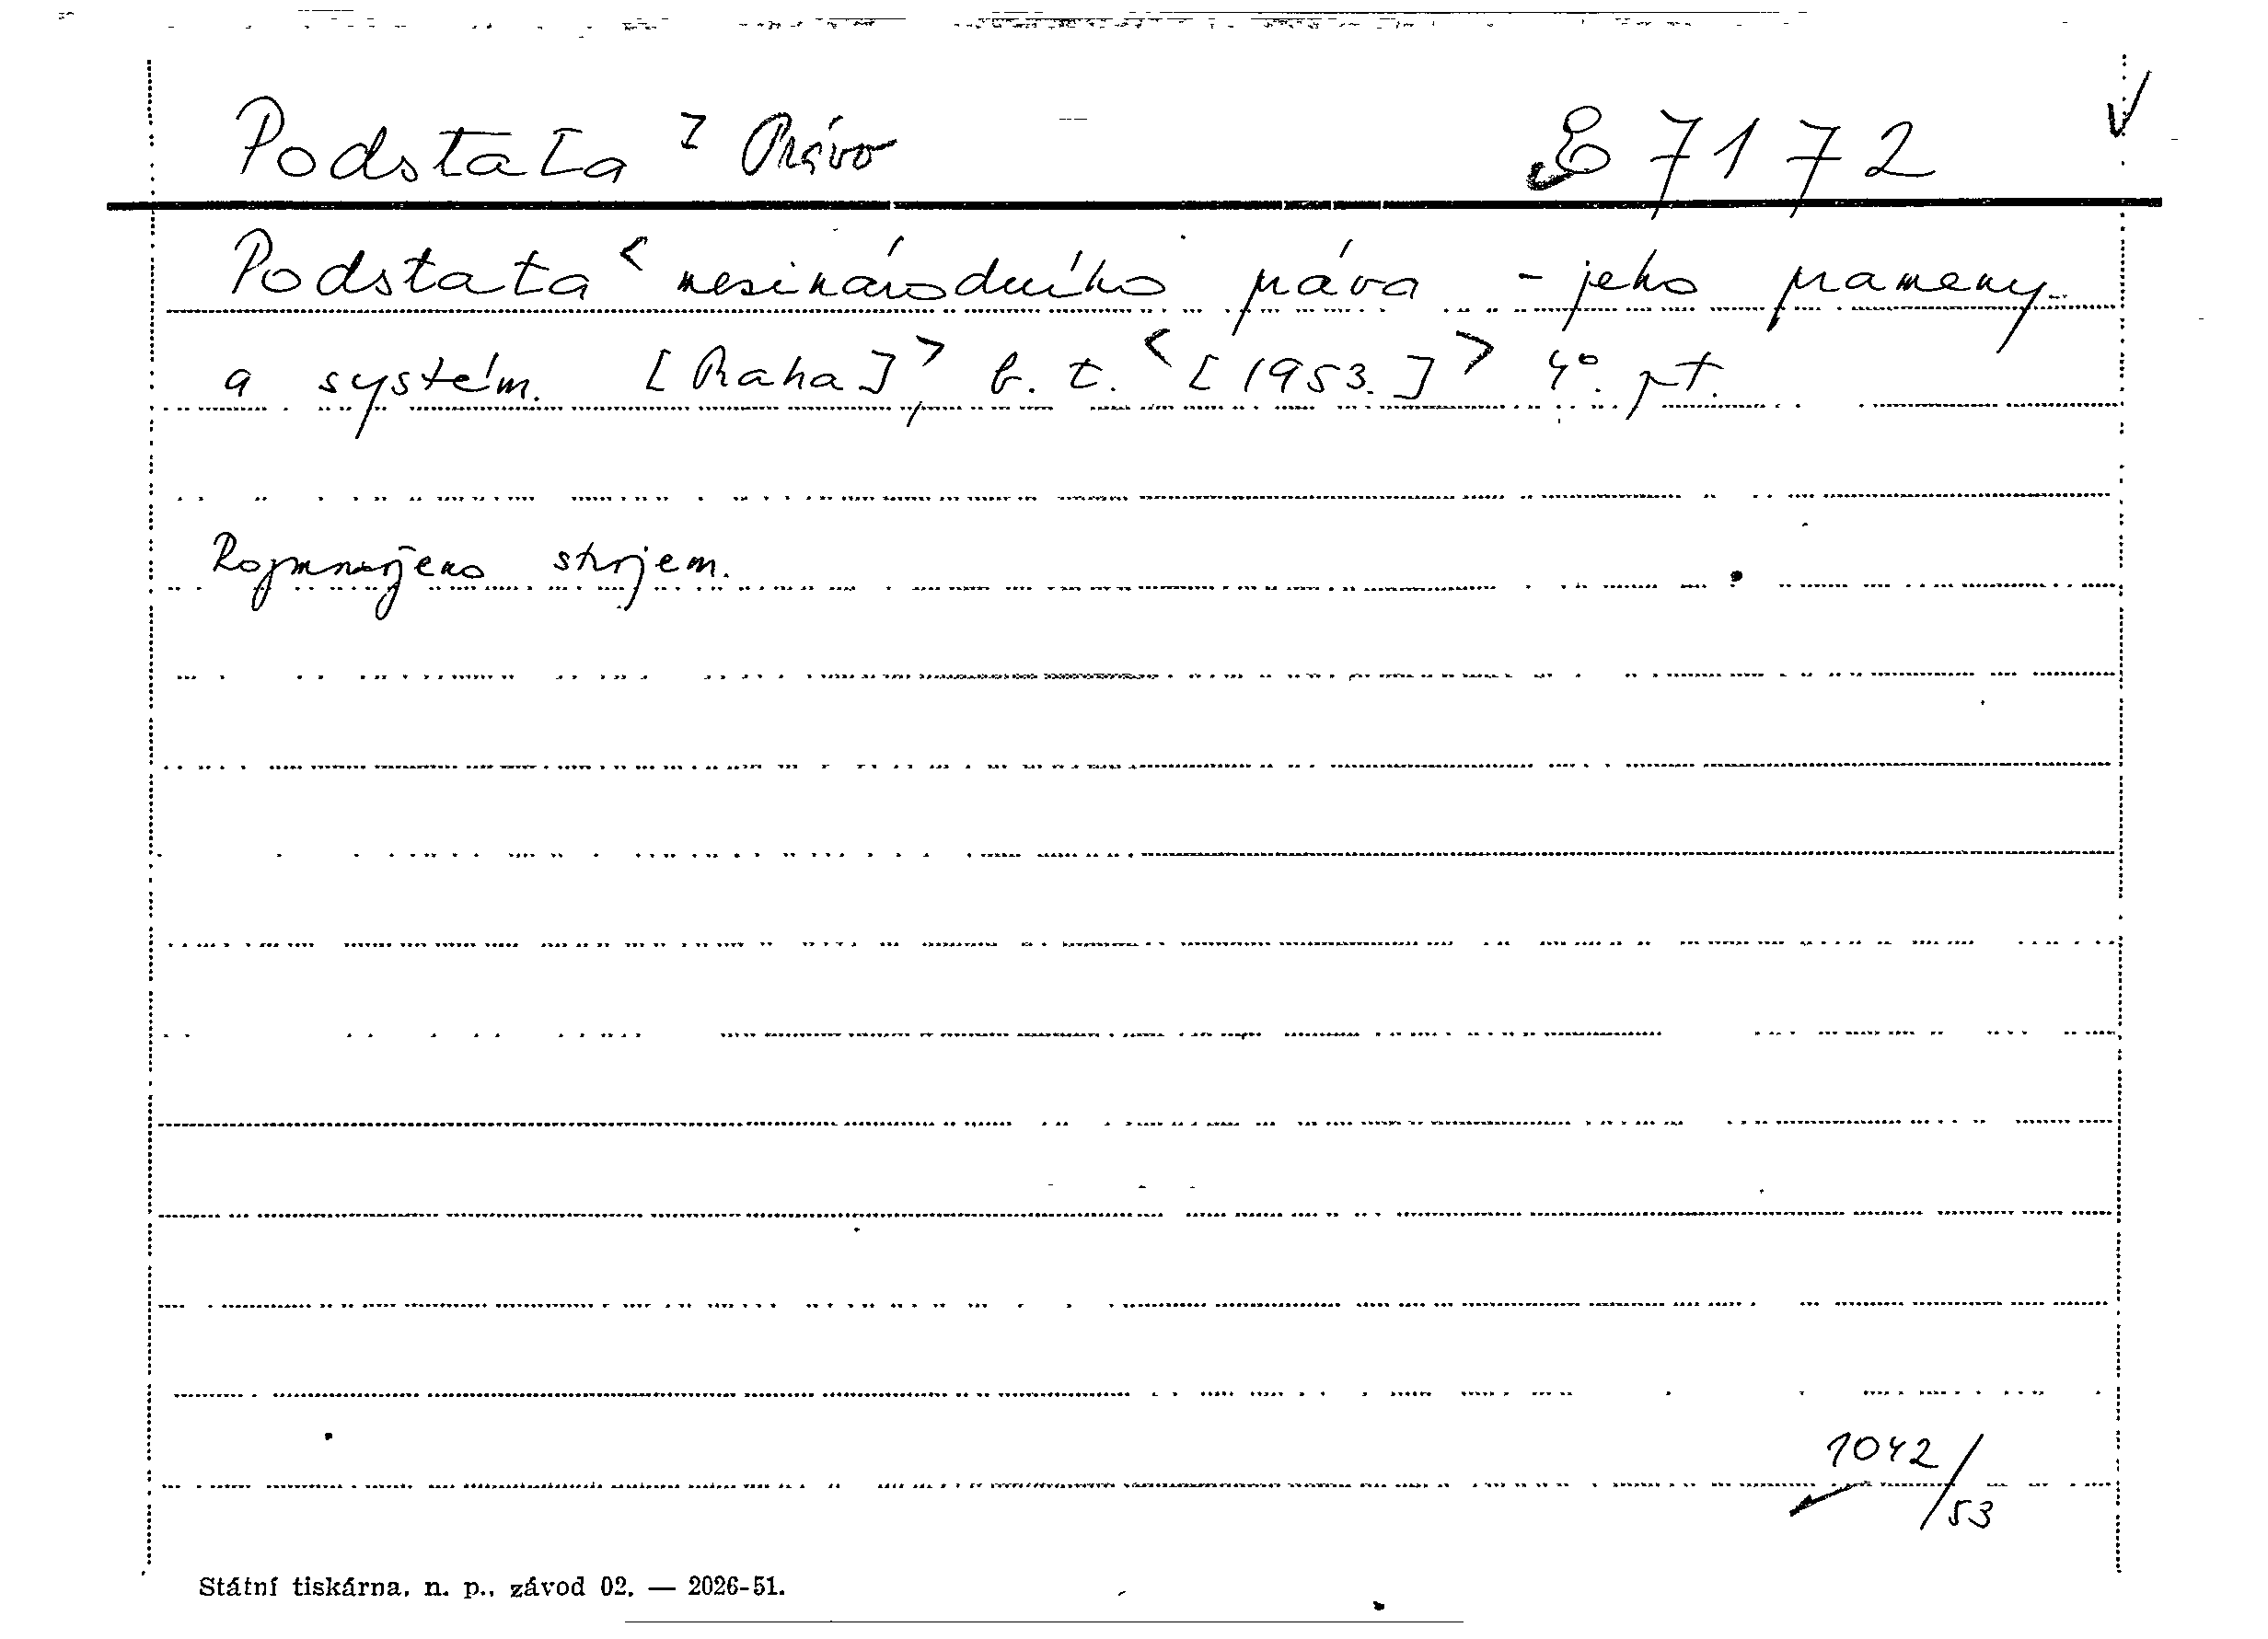 Podstata Právo E 7172
Podstata < mezinárodního práva - jeho prameny
a systém. [Praha]>, b. t. <[1953.]> 4°. pt.
Rozmnoženo strojem.
1042/53
Státní tiskárna, n. p., závod 02. — 2026-51.